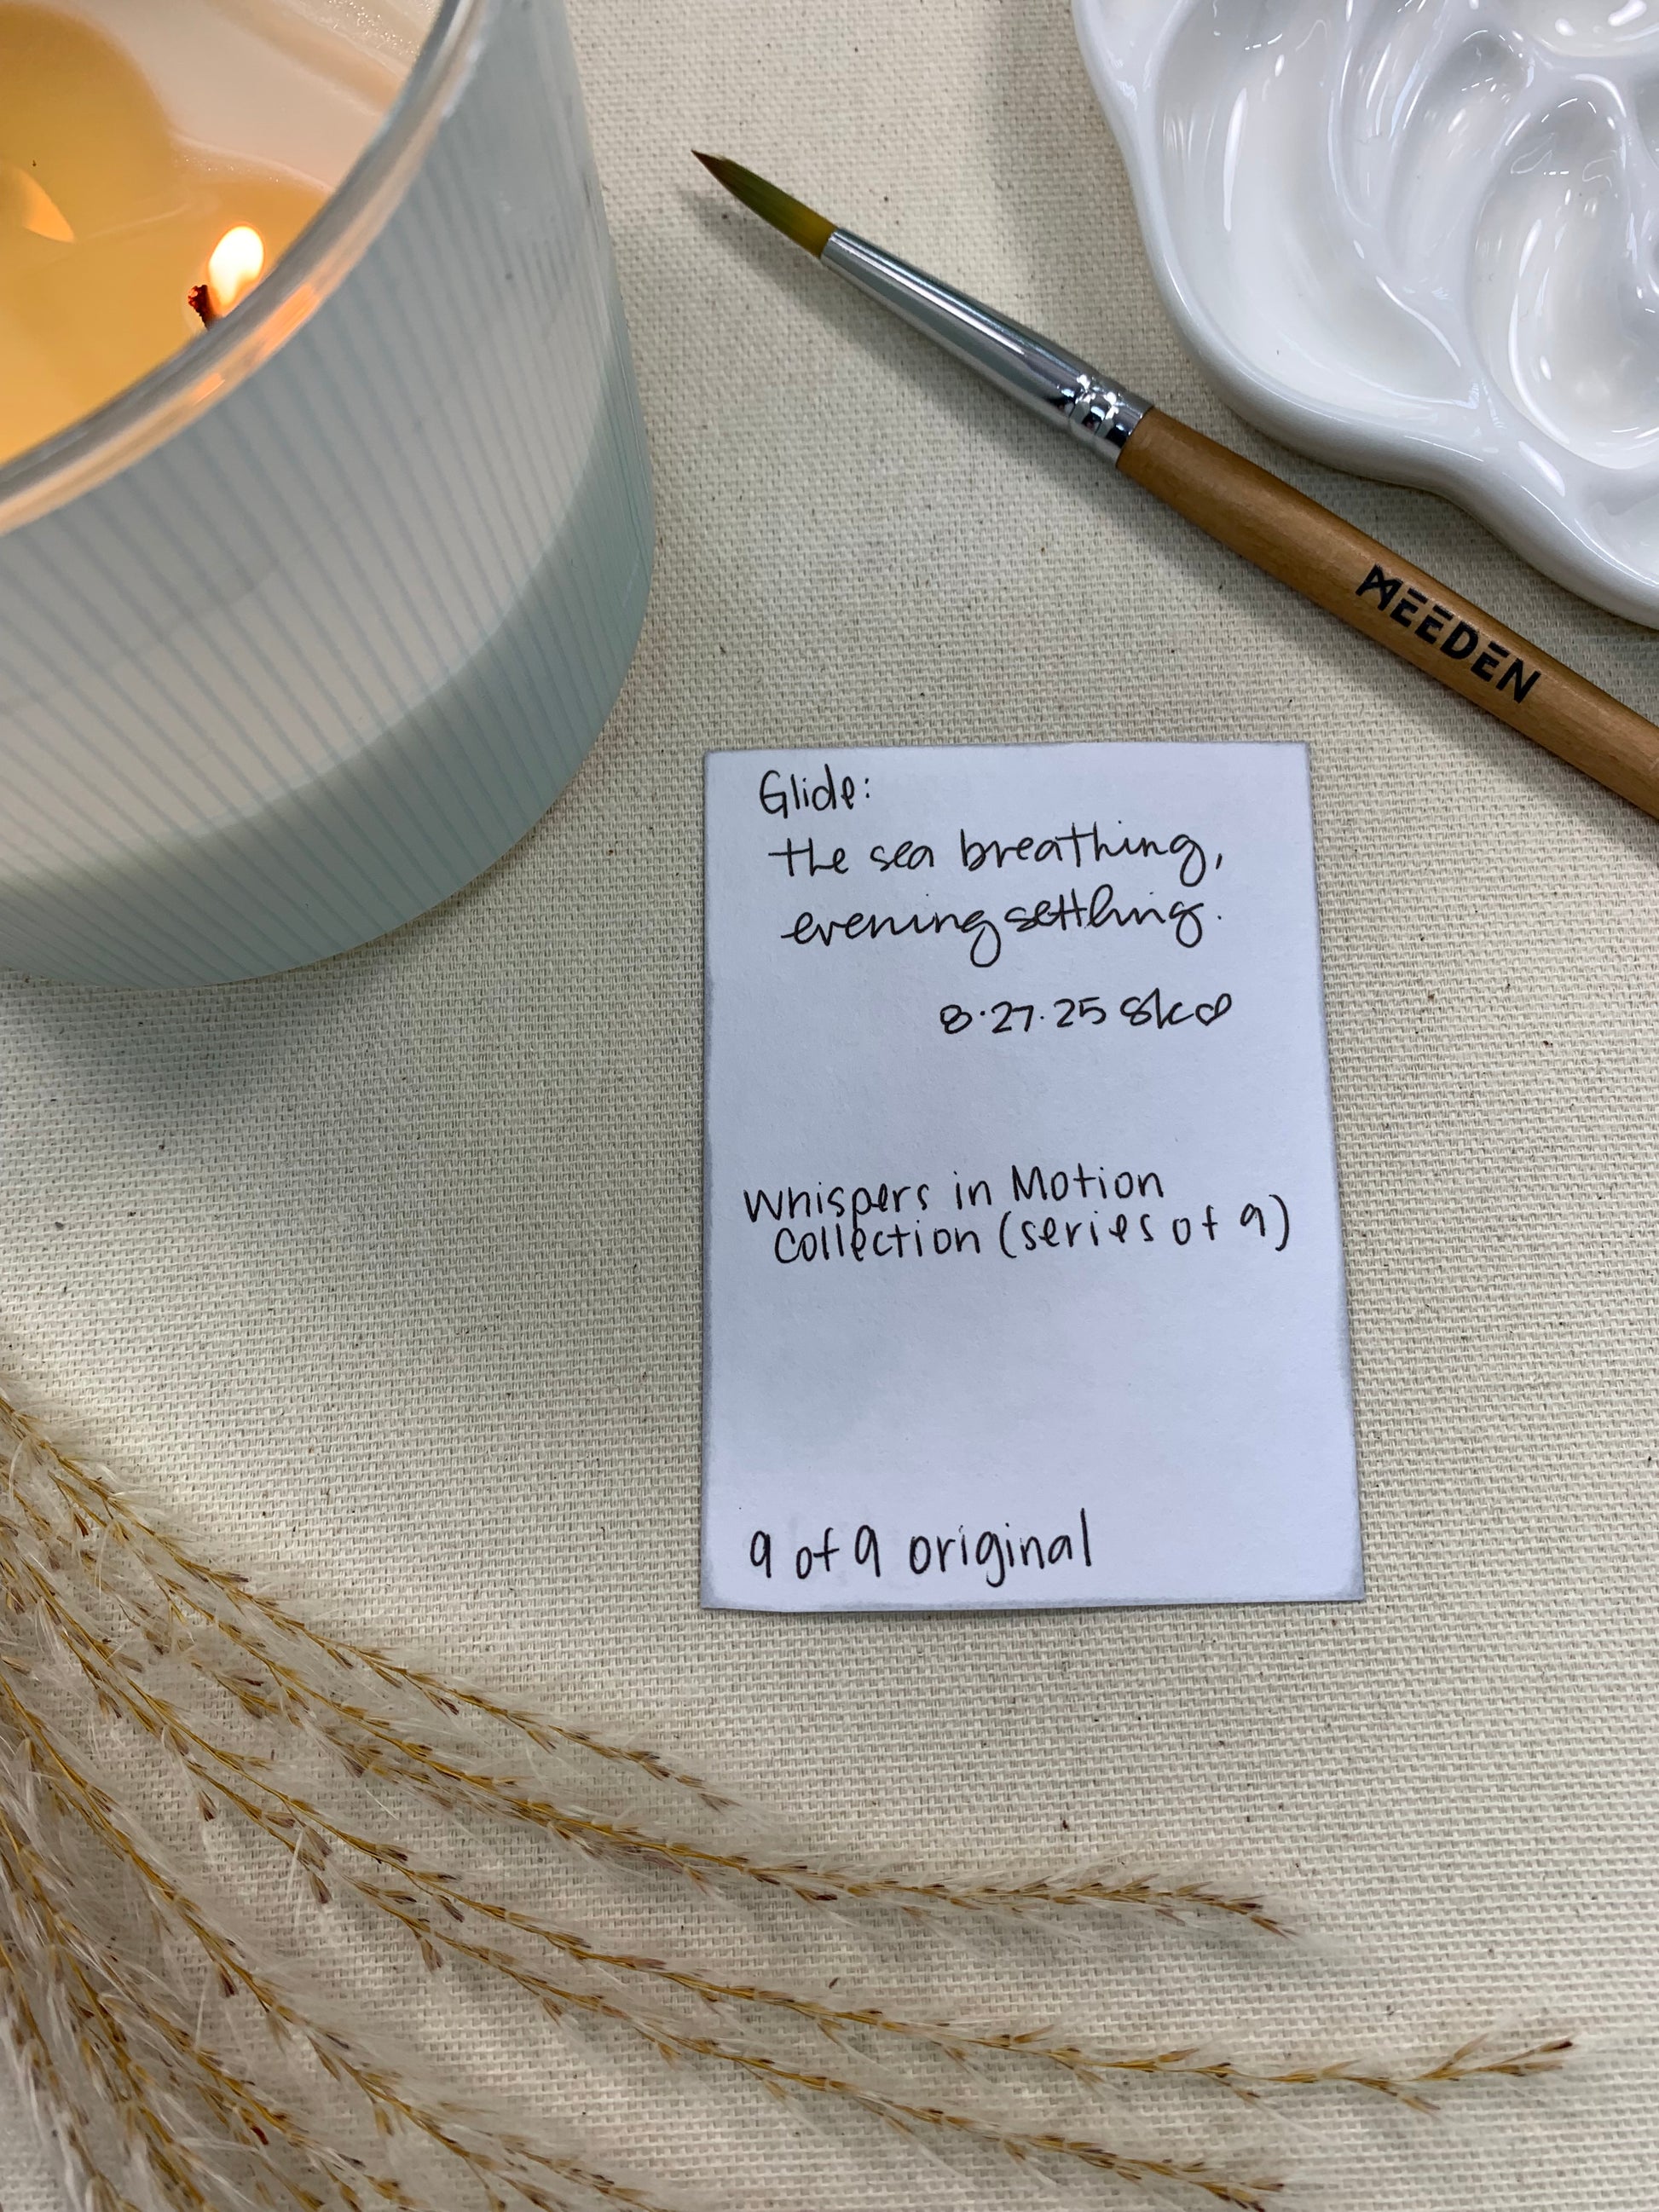 MEEDEN
Glide:
the sea breathing,
evening settling.
8.27.25 Sk♡
Whispers in Motion
Collection (series of 9)
9 of 9 original